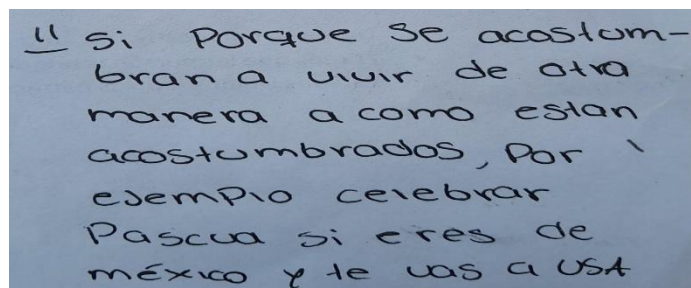 11 Si Porque Se acostum-
bran a vivir de otra
manera a como estan
acostumbrados, Por
ejemplo celebrar
Pascua si eres de
méxico y te vas a USA